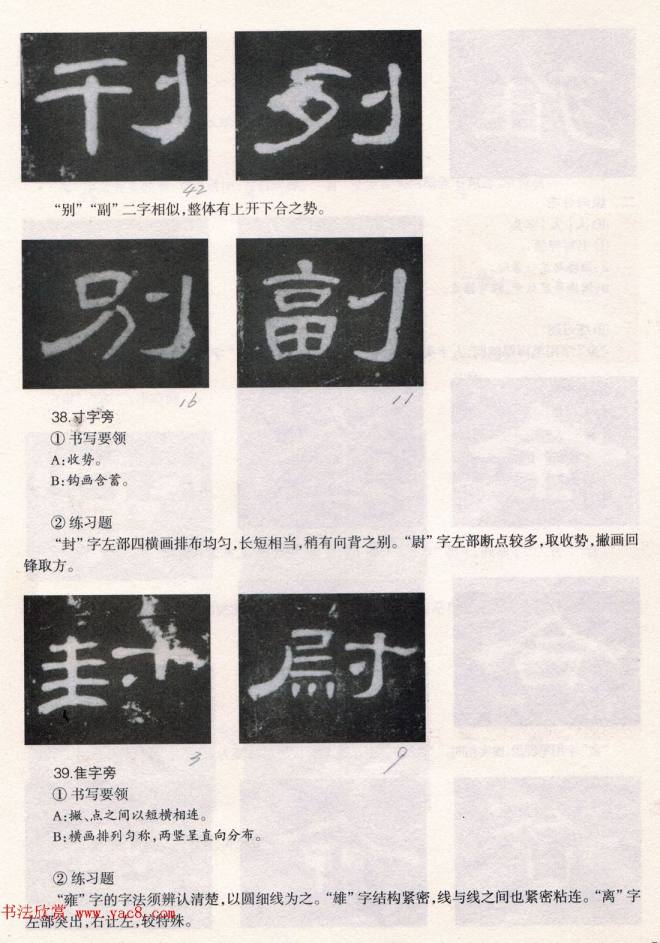 刊 列
42
“别”“副”二字相似,整体有上开下合之势。
别 副
16 11
38.寸字旁
① 书写要领
A:收势。
B:钩画含蓄。
② 练习题
“封”字左部四横画排布均匀,长短相当,稍有向背之别。“尉”字左部断点较多,取收势,撇画回
锋取方。
封 尉
3 9
39.隹字旁
① 书写要领
A:撇、点之间以短横相连。
B:横画排列匀称,两竖呈直向分布。
② 练习题
“雍”字的字法须辨认清楚,以圆细线为之。“雄”字结构紧密,线与线之间也紧密粘连。“离”字
左部突出,右让左,较特殊。
书法欣赏 www.yac8.com